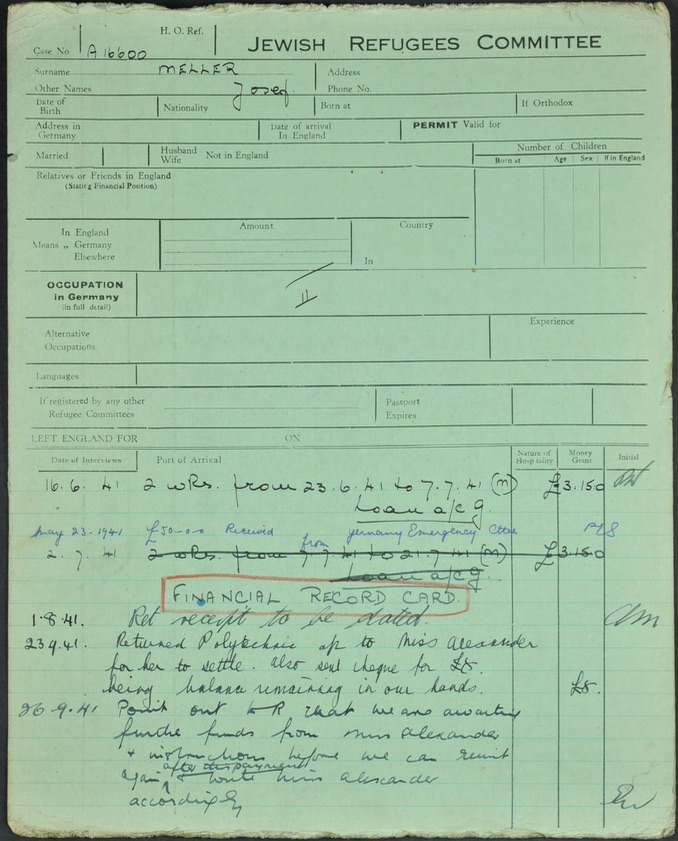 H. O. Ref.
Case No. A 16600
JEWISH REFUGEES COMMITTEE
Surname MELLER
Other Names Josef.
Address
Phone No.
Date of Birth
Nationality
Born at
If Orthodox
Address in Germany
Date of arrival In England
PERMIT Valid for
Married
Husband
Wife
Not in England
Number of Children
Born at Age Sex If in England
Relatives or Friends in England
(Stating Financial Position)
In England
Means „ Germany
Elsewhere
Amount
Country
In
II
OCCUPATION
in Germany
(in full detail)
Alternative
Occupations
Experience
Languages
If registered by any other
Refugee Committees
Passport
Expires
LEFT ENGLAND FOR ON
Date of Interviews
Port of Arrival
Nature of Hospitality
Money Grant
Initial
16. 6. 41 2 wks. from 23. 6. 41 to 7. 7. 41 (M) £3.15.0
Loan a/c G
May 23-1941 £50-0-0 Received from Germany Emergency Cttee
2. 7. 41 2 wks. from 7. 7. 41 to 21. 7. 41 (M) £3.15.0
Loan a/c G.
FINANCIAL RECORD CARD.
1.8.41. Ret receipt to be dated.
23.9.41. Returned Polytechnic a/c to Miss Alexander
for her to settle. Also sent cheque for £8.
being balance remaining in our hands. £8.
26.9.41 Point out to R that we are awaiting
further funds from Miss Alexander
+ instructions before we can remit
again after this payment & write Miss Alexander
accordingly